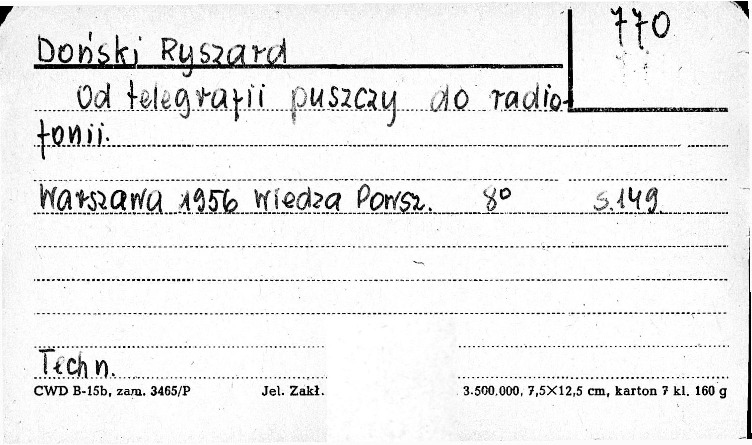 770
Doński Ryszard
Od telegrafii puszczy do radio-
fonii.
Warszawa 1956 Wiedza Powsz. 8° s.149.
Techn.
CWD B-15b, zam. 3465/P Jel. Zakł. 3.500.000, 7,5×12,5 cm, karton 7 kl. 160 g